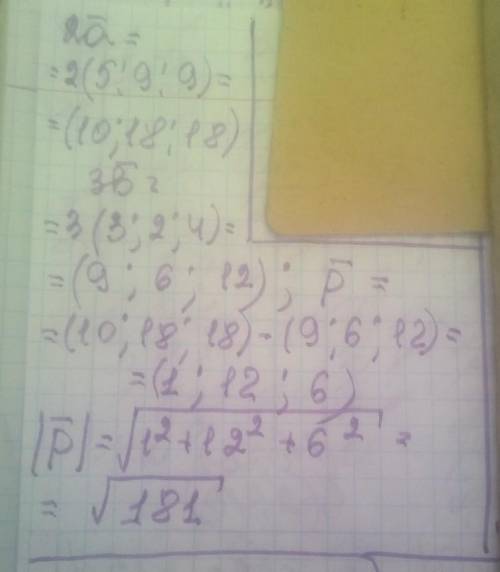 2a̅ =
=2(5;9;9)=
=(10;18;18)
3b̅ =
=3(3;2;4)=
=(9; 6; 12); p̅ =
=(10;18;18)-(9;6;12)=
=(1; 12; 6)
|p̅|=√1²+12²+6² =
= √181